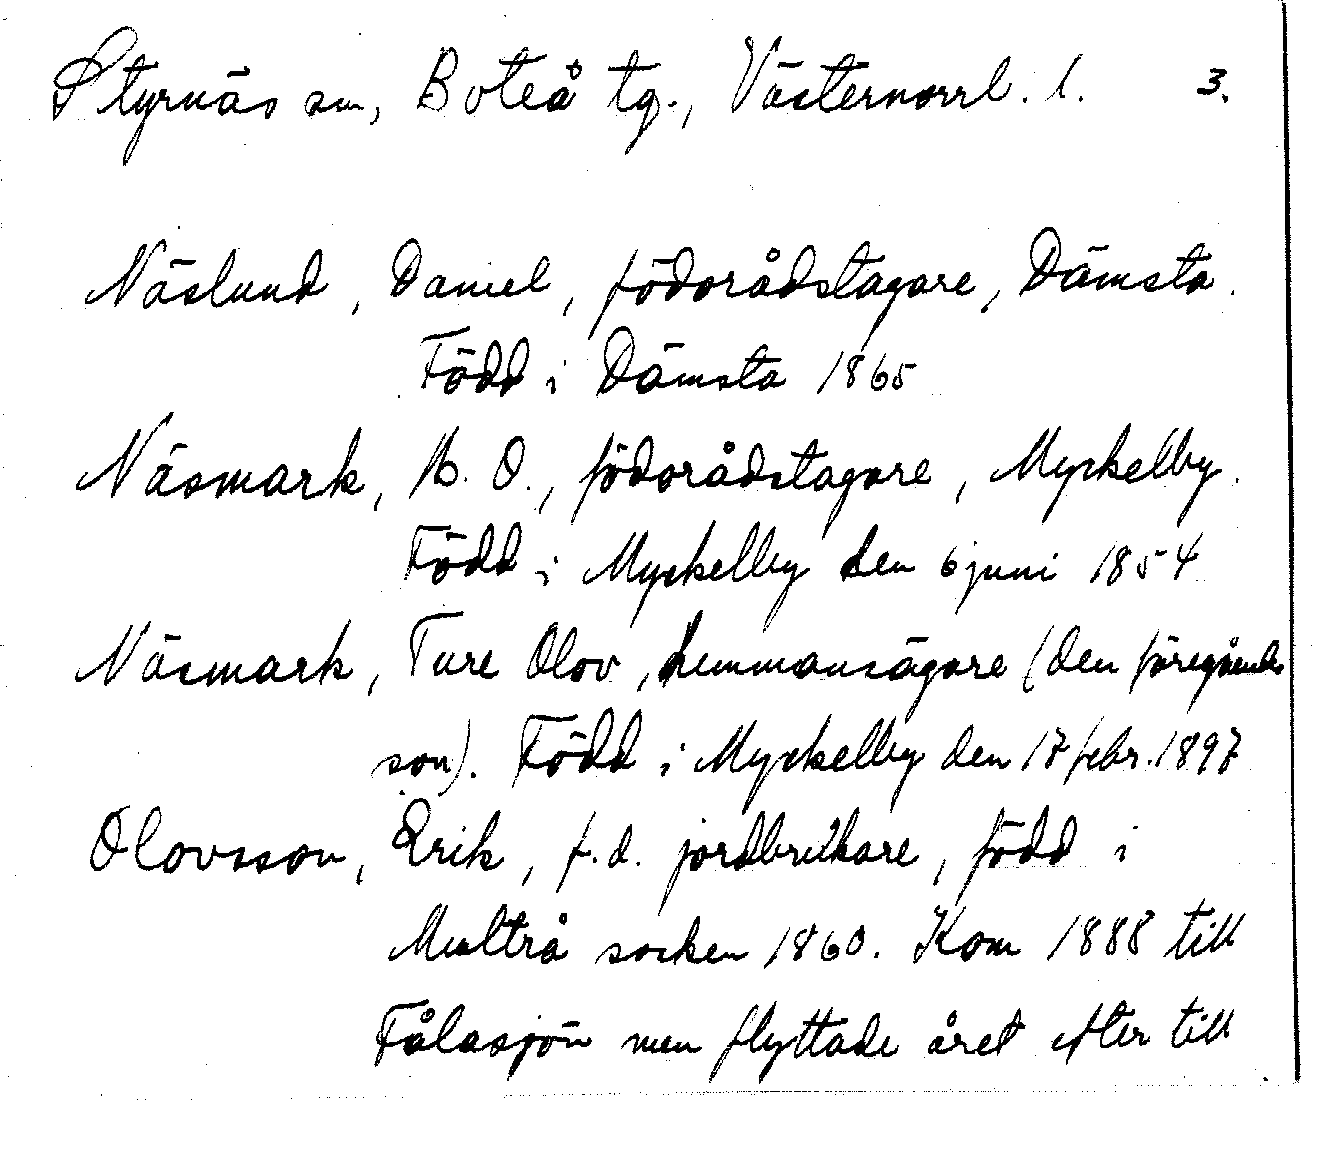 Styrnäs sn, Boteå tg., Västernorrl. l. 3.
Näslund, Daniel, födorådstagare, Dämsta.
Född i Dämsta 1865
Näsmark, N. O., födorådstagare, Myckelby.
Född i Myckelby den 6 juni 1854
Näsmark, Ture Olov, hemmansägare (den föregåendes
son). Född i Myckelby den 17 febr. 1897
Olovsson, Erik, f.d. jordbrukare, född i
Multrå socken 1860. Kom 1888 till
Fålasjön men flyttade året efter till